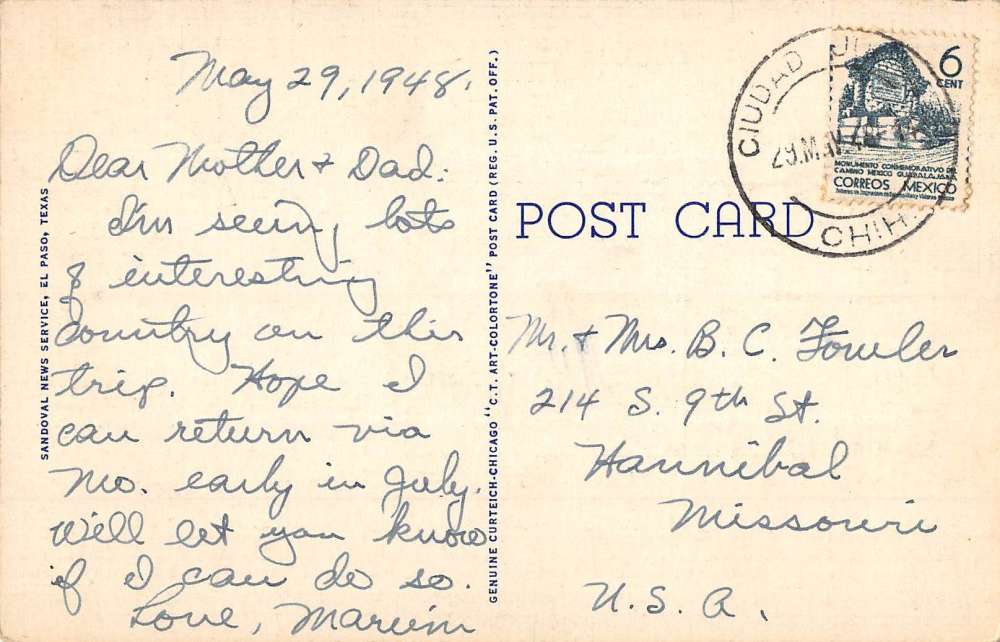 May 29, 1948.
Dear Mother & Dad:
I'm seeing lots
of interesting
country on this
trip. Hope I
can return via
Mo. early in July.
Will let you know
if I can do so.
Love,
SANDOVAL NEWS SERVICE, EL PASO, TEXAS
GENUINE CURTEICH-CHICAGO "C.T. ART-COLORTONE" POST CARD (REG. U.S. PAT. OFF.)
POST CARD
CIUDAD
29.MAY.48
CHIH
6
CENT
MONUMENTO CONMEMORATIVO DEL
CAMINO MEXICO GUADALAJARA
CORREOS MEXICO
Mr. & Mrs. B. C. Fowler
214 S. 9th St.
Hannibal
Missouri
U.S.A.